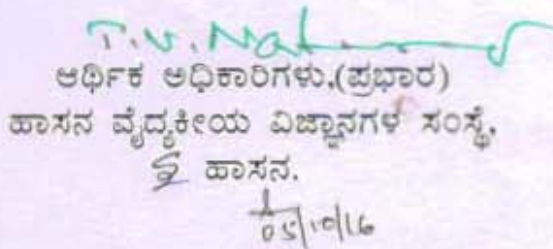 ಆರ್ಥಿಕ ಅಧಿಕಾರಿಗಳು,(ಪ್ರಭಾರ)
ಹಾಸನ ವೈದ್ಯಕೀಯ ವಿಜ್ಞಾನಗಳ ಸಂಸ್ಥೆ,
ಹಾಸನ.
05/10/16